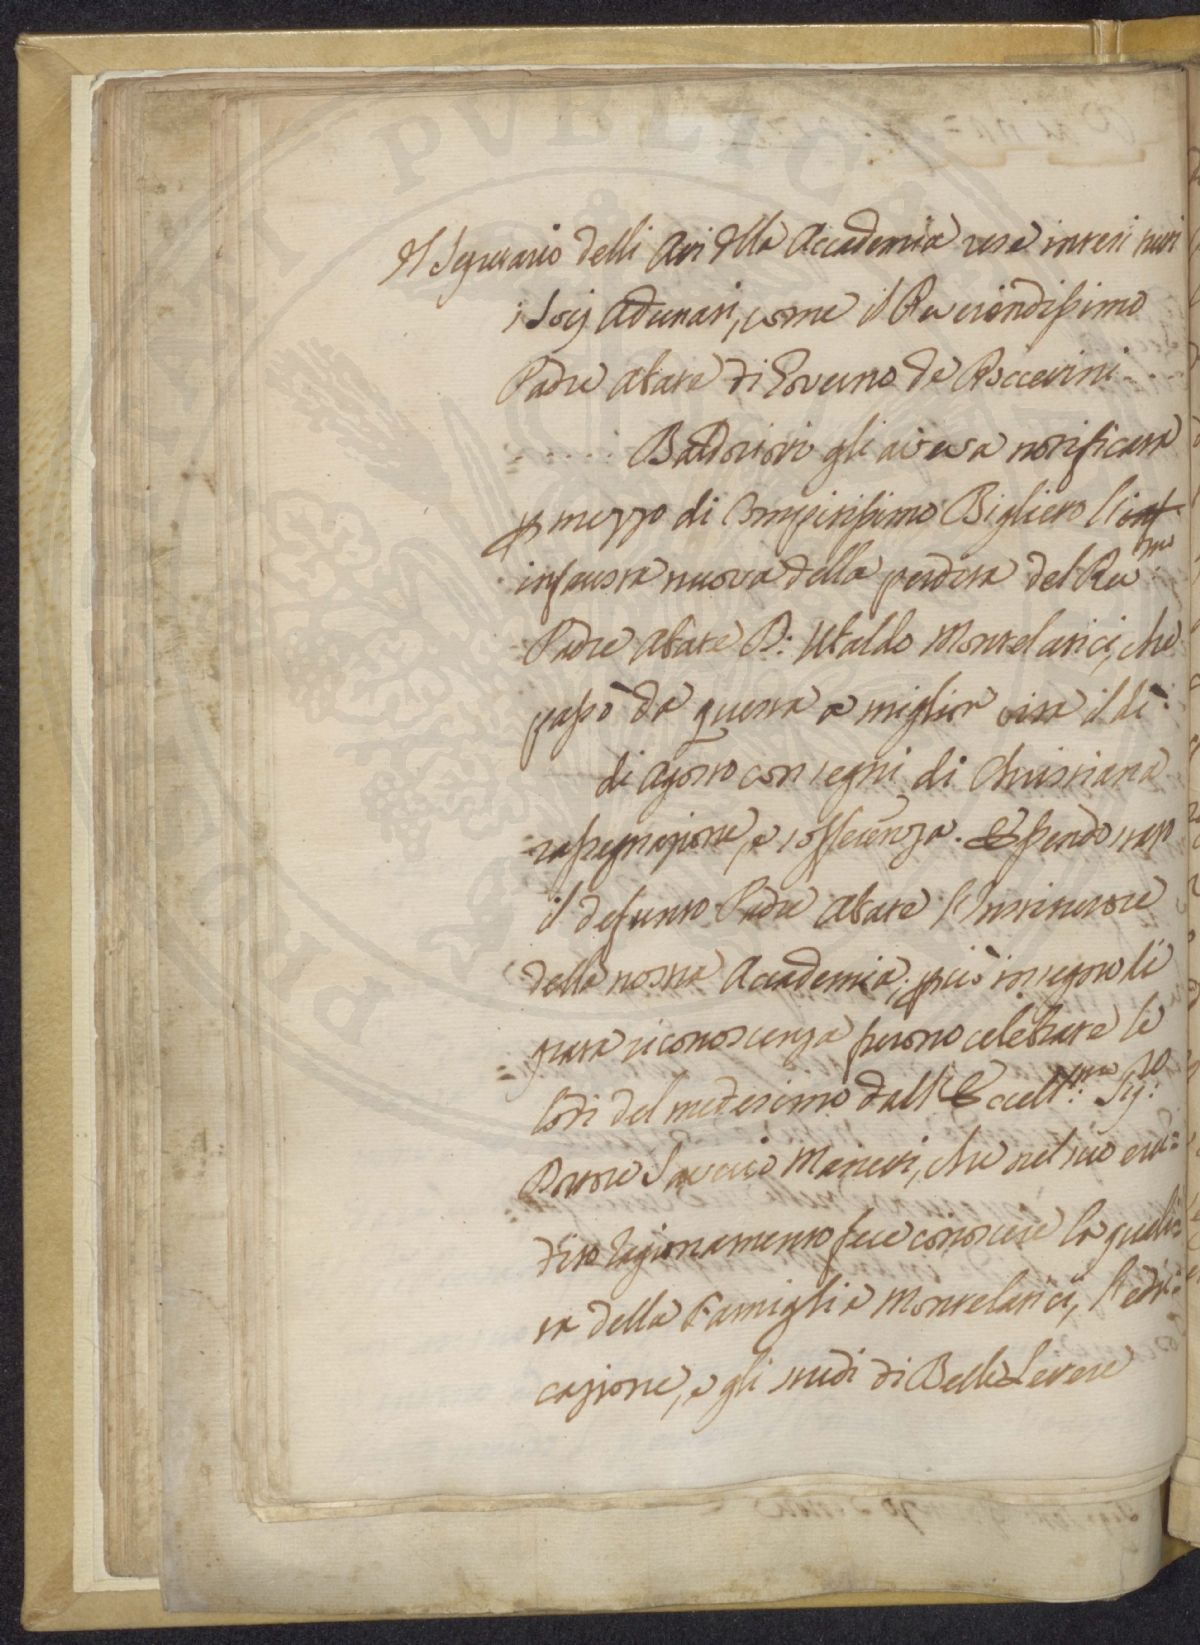 Il Segretario delli Atti della Accademia rese intesi tutti
i Socij Adunati, come il Reverendissimo
Padre Abate di Governo De
gli aveva notificata
p mezzo di Compitissimo Biglietto l'inf
infausta nuova della perdita del Rev:mo
Padre Abate D: Ubaldo Montelatici, che
passò da questa a miglior vita il dì
di Agosto con segni di Christiana
rassegnazione, e sofferenza. Essendo stato
il defunto Padre Abate l'Institutore
della nostra Accademia; pciò in segno di
grata riconoscenza furono celebrate le
lodi del medesimo dall'Eccell:mo Sig:
Dottore Saverio Manetti, che nel suo eru=
dito ragionamento fece conoscere la quali=
tà della Famiglia Montelatici, l'edu=
cazione, e gli studi di Belle Lettere
PUBLICA